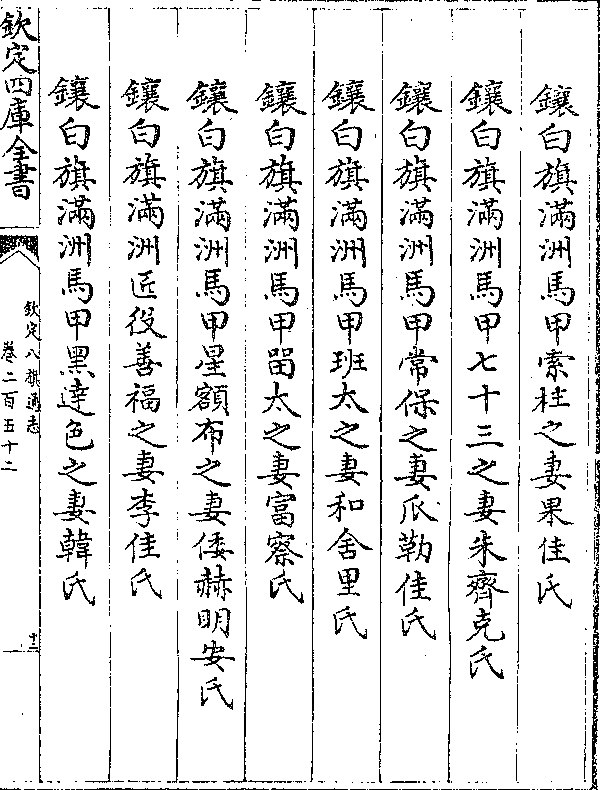 鑲白旗滿洲馬甲索柱之妻果佳氏
鑲白旗滿洲馬甲七十三之妻朱齊克氏
鑲白旗滿洲馬甲常保之妻瓜勒佳氏
鑲白旗滿洲馬甲班太之妻和舍里氏
鑲白旗滿洲馬甲留太之妻富察氏
鑲白旗滿洲馬甲星額布之妻倭赫明安氏
鑲白旗滿洲匠役善福之妻李佳氏
鑲白旗滿洲馬甲黑達色之妻韓氏
欽定四庫全書
欽定八旗通志
卷二百五十二
十三